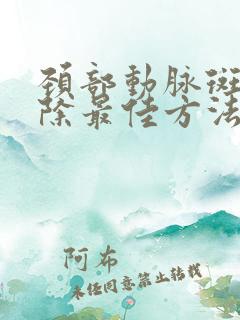 頚部動脉斑
除最佳方法
阿布
未经同意禁止转载